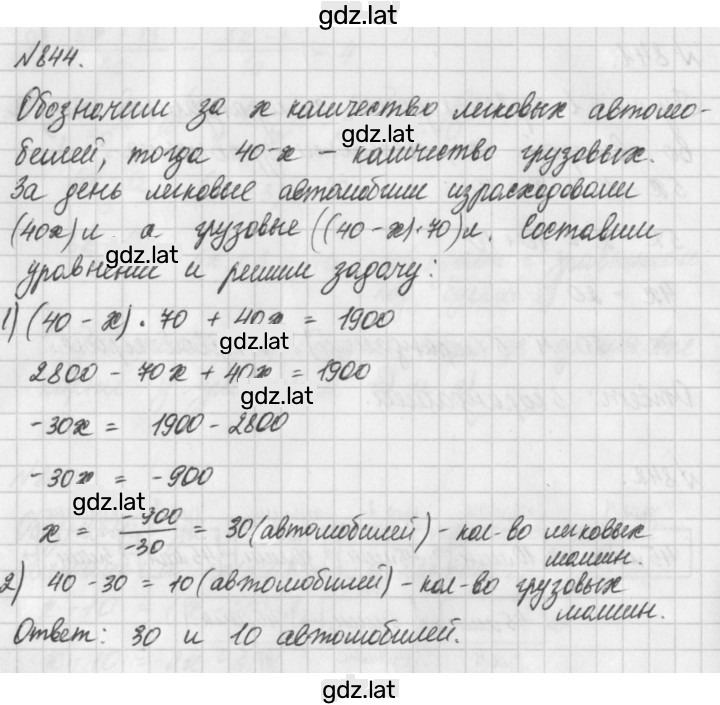 gdz.lat
№844.
Обозначим за x количество легковых автомо-
gdz.lat
билей, тогда 40-x – количество грузовых.
За день легковые автомобили израсходовали
(40x) л а грузовые ((40-x)·70) л. Составим
gdz.lat
уравнение и решим задачу:
1) (40 - x) · 70 + 40x = 1900
gdz.lat
2800 - 70x + 40x = 1900
gdz.lat
-30x = 1900 - 2800
-30x = -900
gdz.lat
x = -900/-30 = 30 (автомобилей) - кол-во легковых
машин.
2) 40 - 30 = 10 (автомобилей) - кол-во грузовых
машин.
Ответ: 30 и 10 автомобилей.
gdz.lat